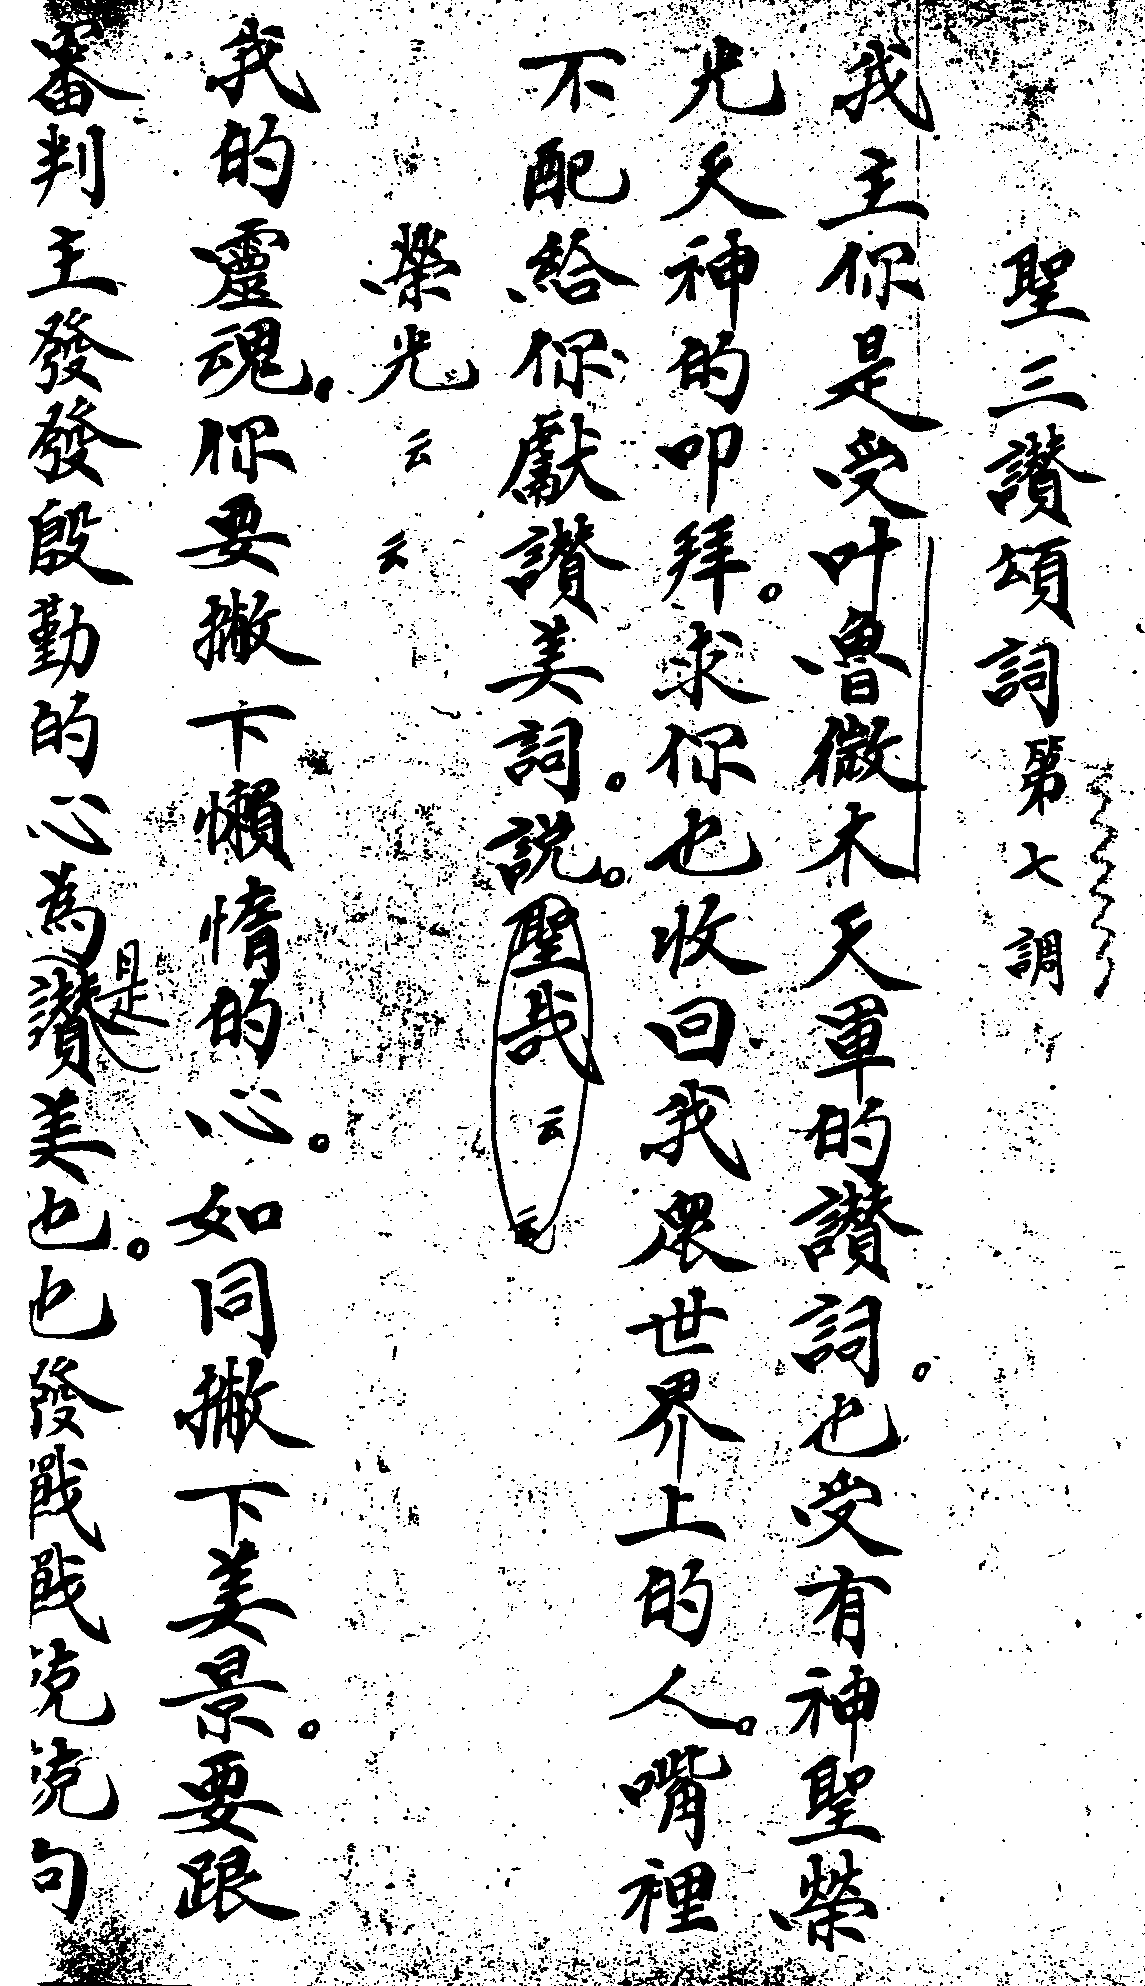 聖三讚頌詞第七調
我主你是受叶魯微木天軍的讚詞。也受有神聖榮
光天神的叩拜。求你也收回我眾世界上的人。嘴裡
不配給你獻讚美詞。說。聖哉云云
榮光云云
我的靈魂。你要撇下懶惰的心。如同撇下美景。要跟
審判主發發殷勤的心為讚美也。也發戰戰兢兢句
是